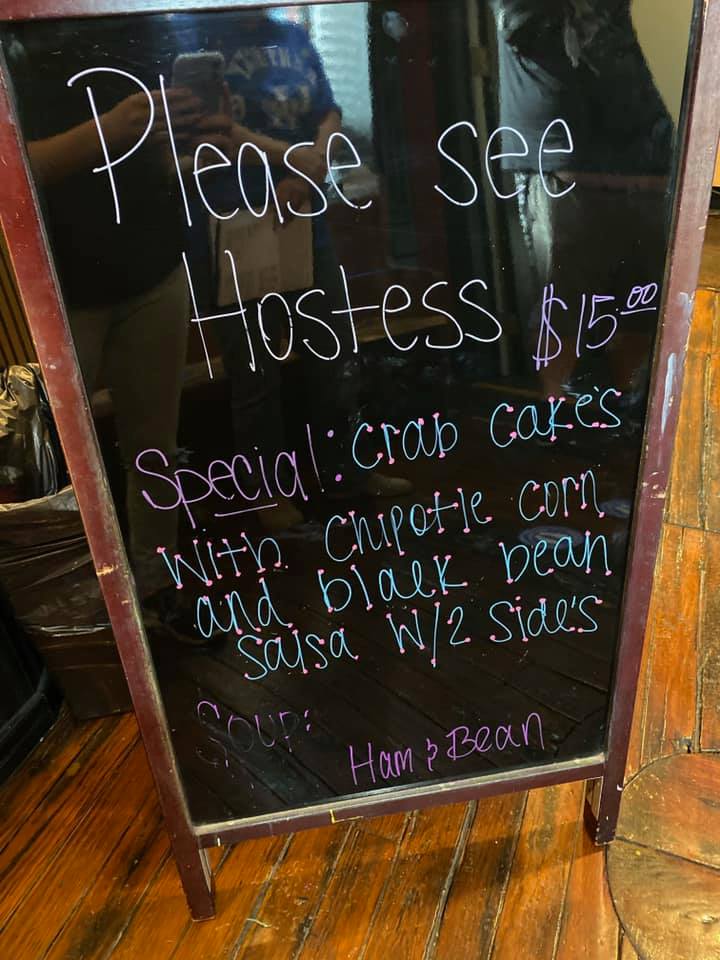 Please see
Hostess $15.00
Special: Crab Cake's
With Chipotle corn
and black bean
salsa W/2 Side's
Soup:
Ham & Bean